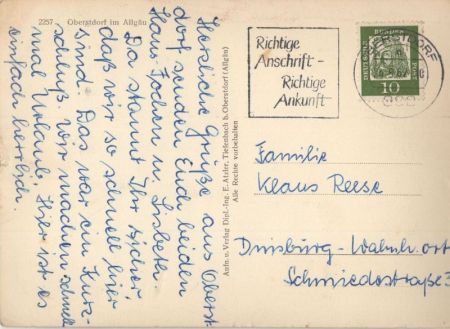 2257 Oberstdorf im Allgäu
Herzliche Grüße aus Oberst-
dorf senden Euch beiden
Hans-Jochen u. Lisbeth
Da staunt Ihr sicher
daß wir so schnell hier
sind. Das war ein Kurz-
schluß. Wir machen schnell
mal Urlaub, hier ist es
einfach herrlich.
Aufn. u. Verlag Dipl.-Ing. E. Atzler, Tiefenbach b. Oberstdorf (Allgäu)
Alle Rechte vorbehalten
Richtige
Anschrift -
Richtige
Ankunft
DEUTSCHE BUNDESPOST
10
Familie
Klaus Reese
Duisburg-Wahnh. ort
Schmiedestraße 3